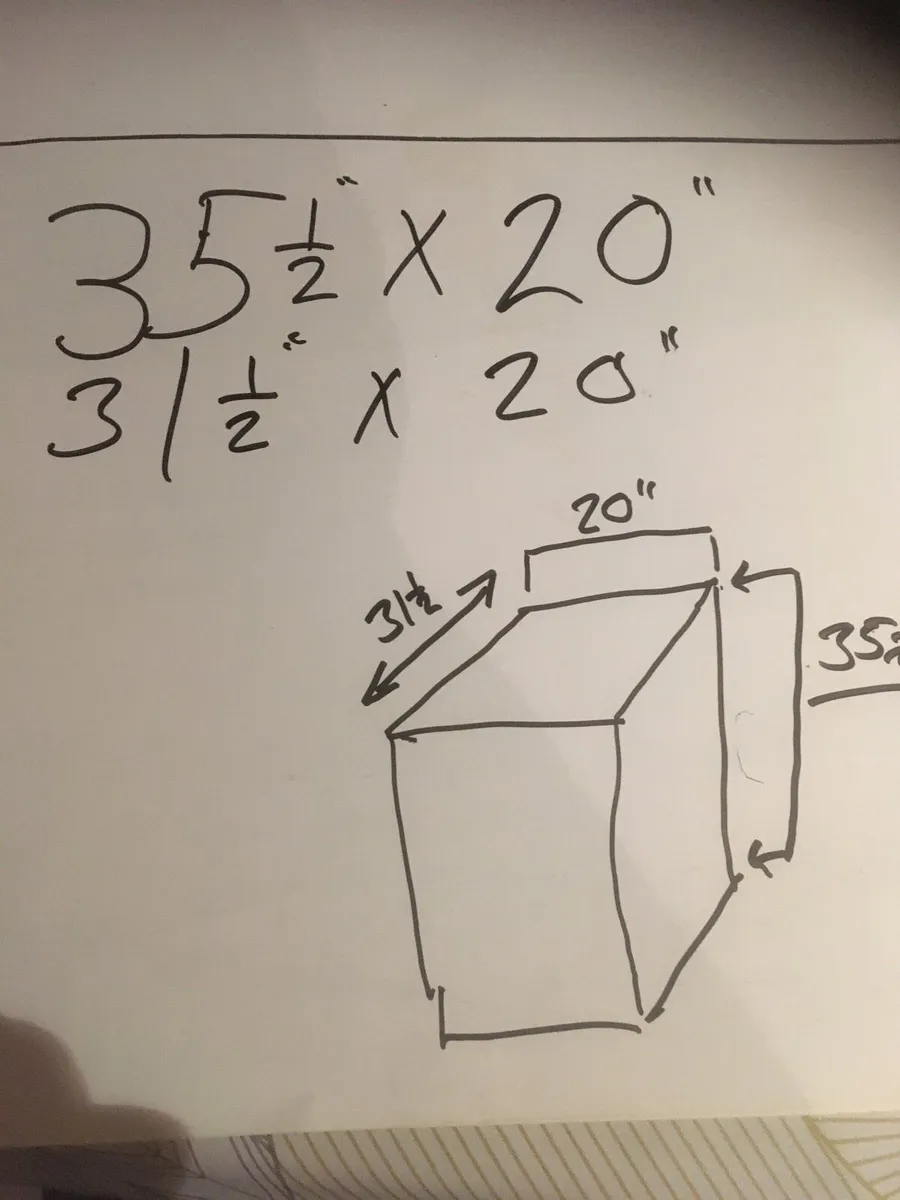 35 1/2" x 20"
31 1/2" x 20"
20"
31 1/2
35